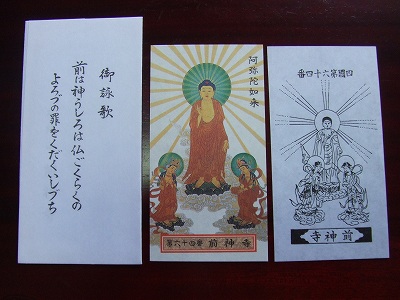 御詠歌
前は神うしろは仏ごくらくの
よろづの罪をくだくいしづち
阿弥陀如来
第六十四番 前神寺
四國第六十四番
前神寺